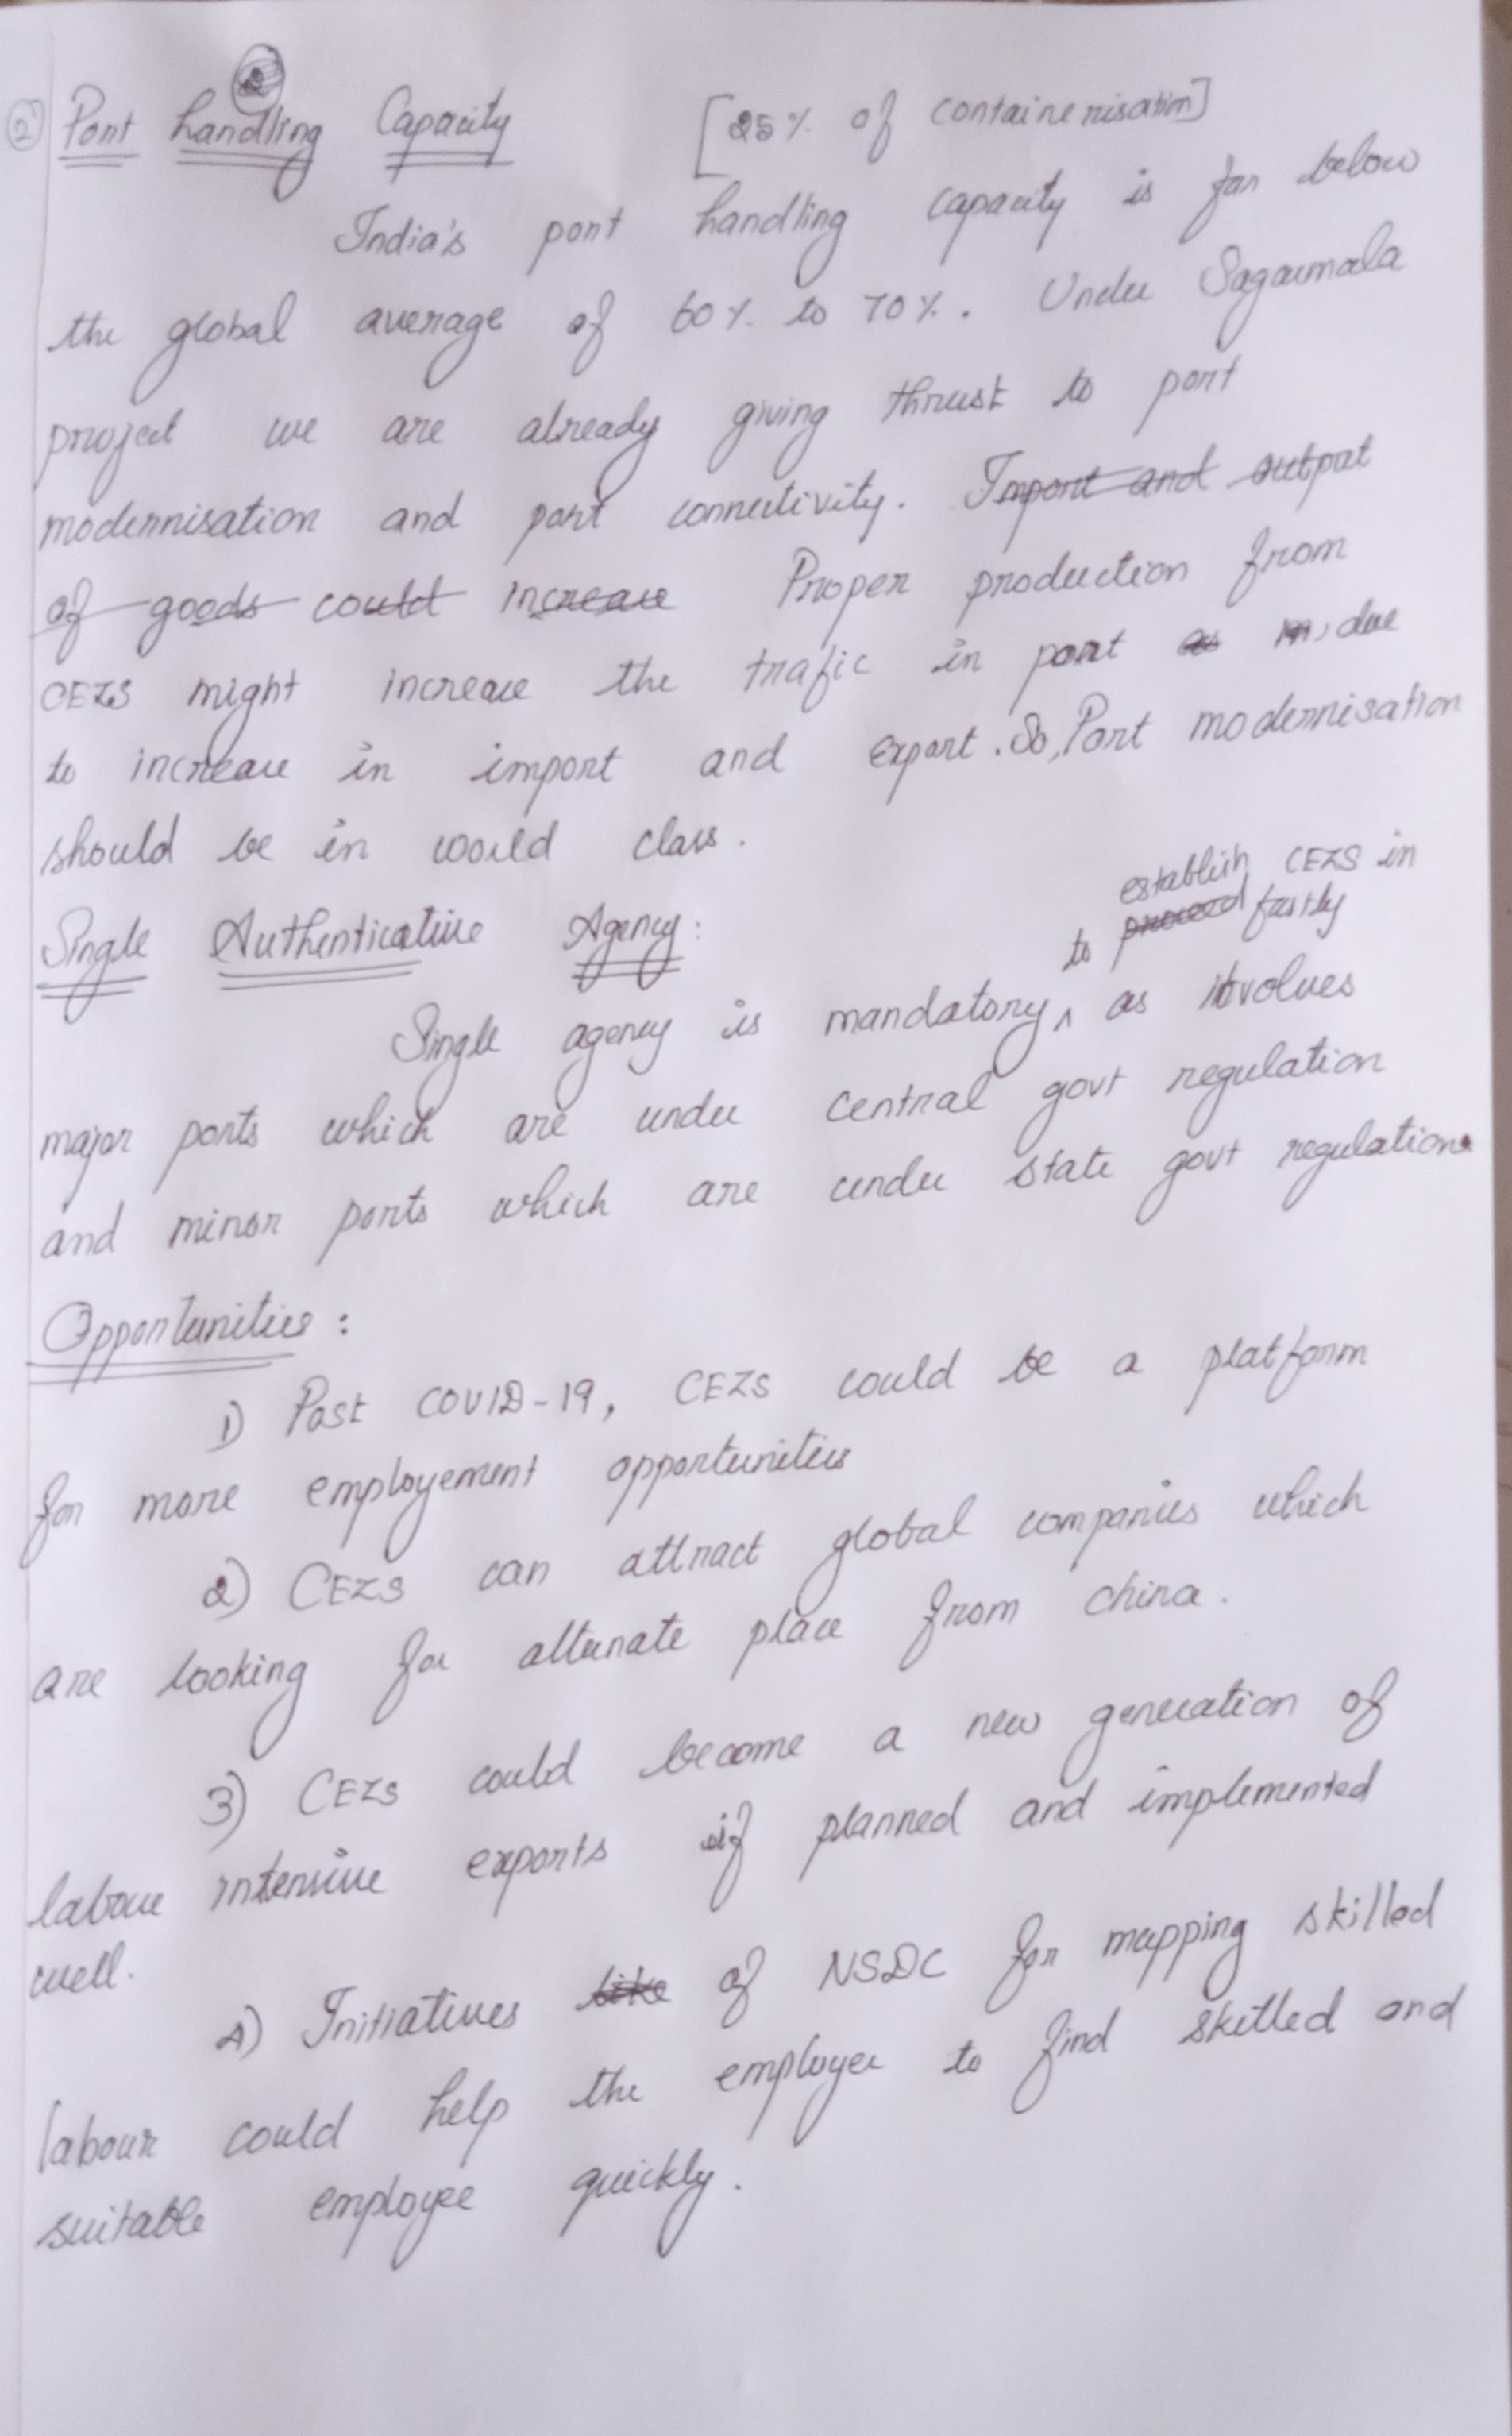 ② Port handling Capacity [25% of containerisation]
India's port handling capacity is far below
the global average of 60% to 70%. Under Sagarmala
project we are already giving thrust to port
modernisation and port connectivity. Import and output
of goods could increase Proper production from
CEZS might increase the trafic in port as due
to increase in import and export. So, Port modernisation
should be in world class.
establish CEZS in
Single Authenticative Agency: to proceed fastly
Single agency is mandatory, as itvolves
major ports which are under central govt regulation
and minor ports which are under state govt regulation.
Opportunities:
1) Post COVID-19, CEZS could be a platform
for more employement opportunities
2) CEZS can attract global companies which
are looking for alternate place from china.
3) CEZS could become a new generation of
labour intensive exports if planned and implemented
well.
4) Initiatives like of NSDC for mapping skilled
labour could help the employer to find skilled and
suitable employee quickly.